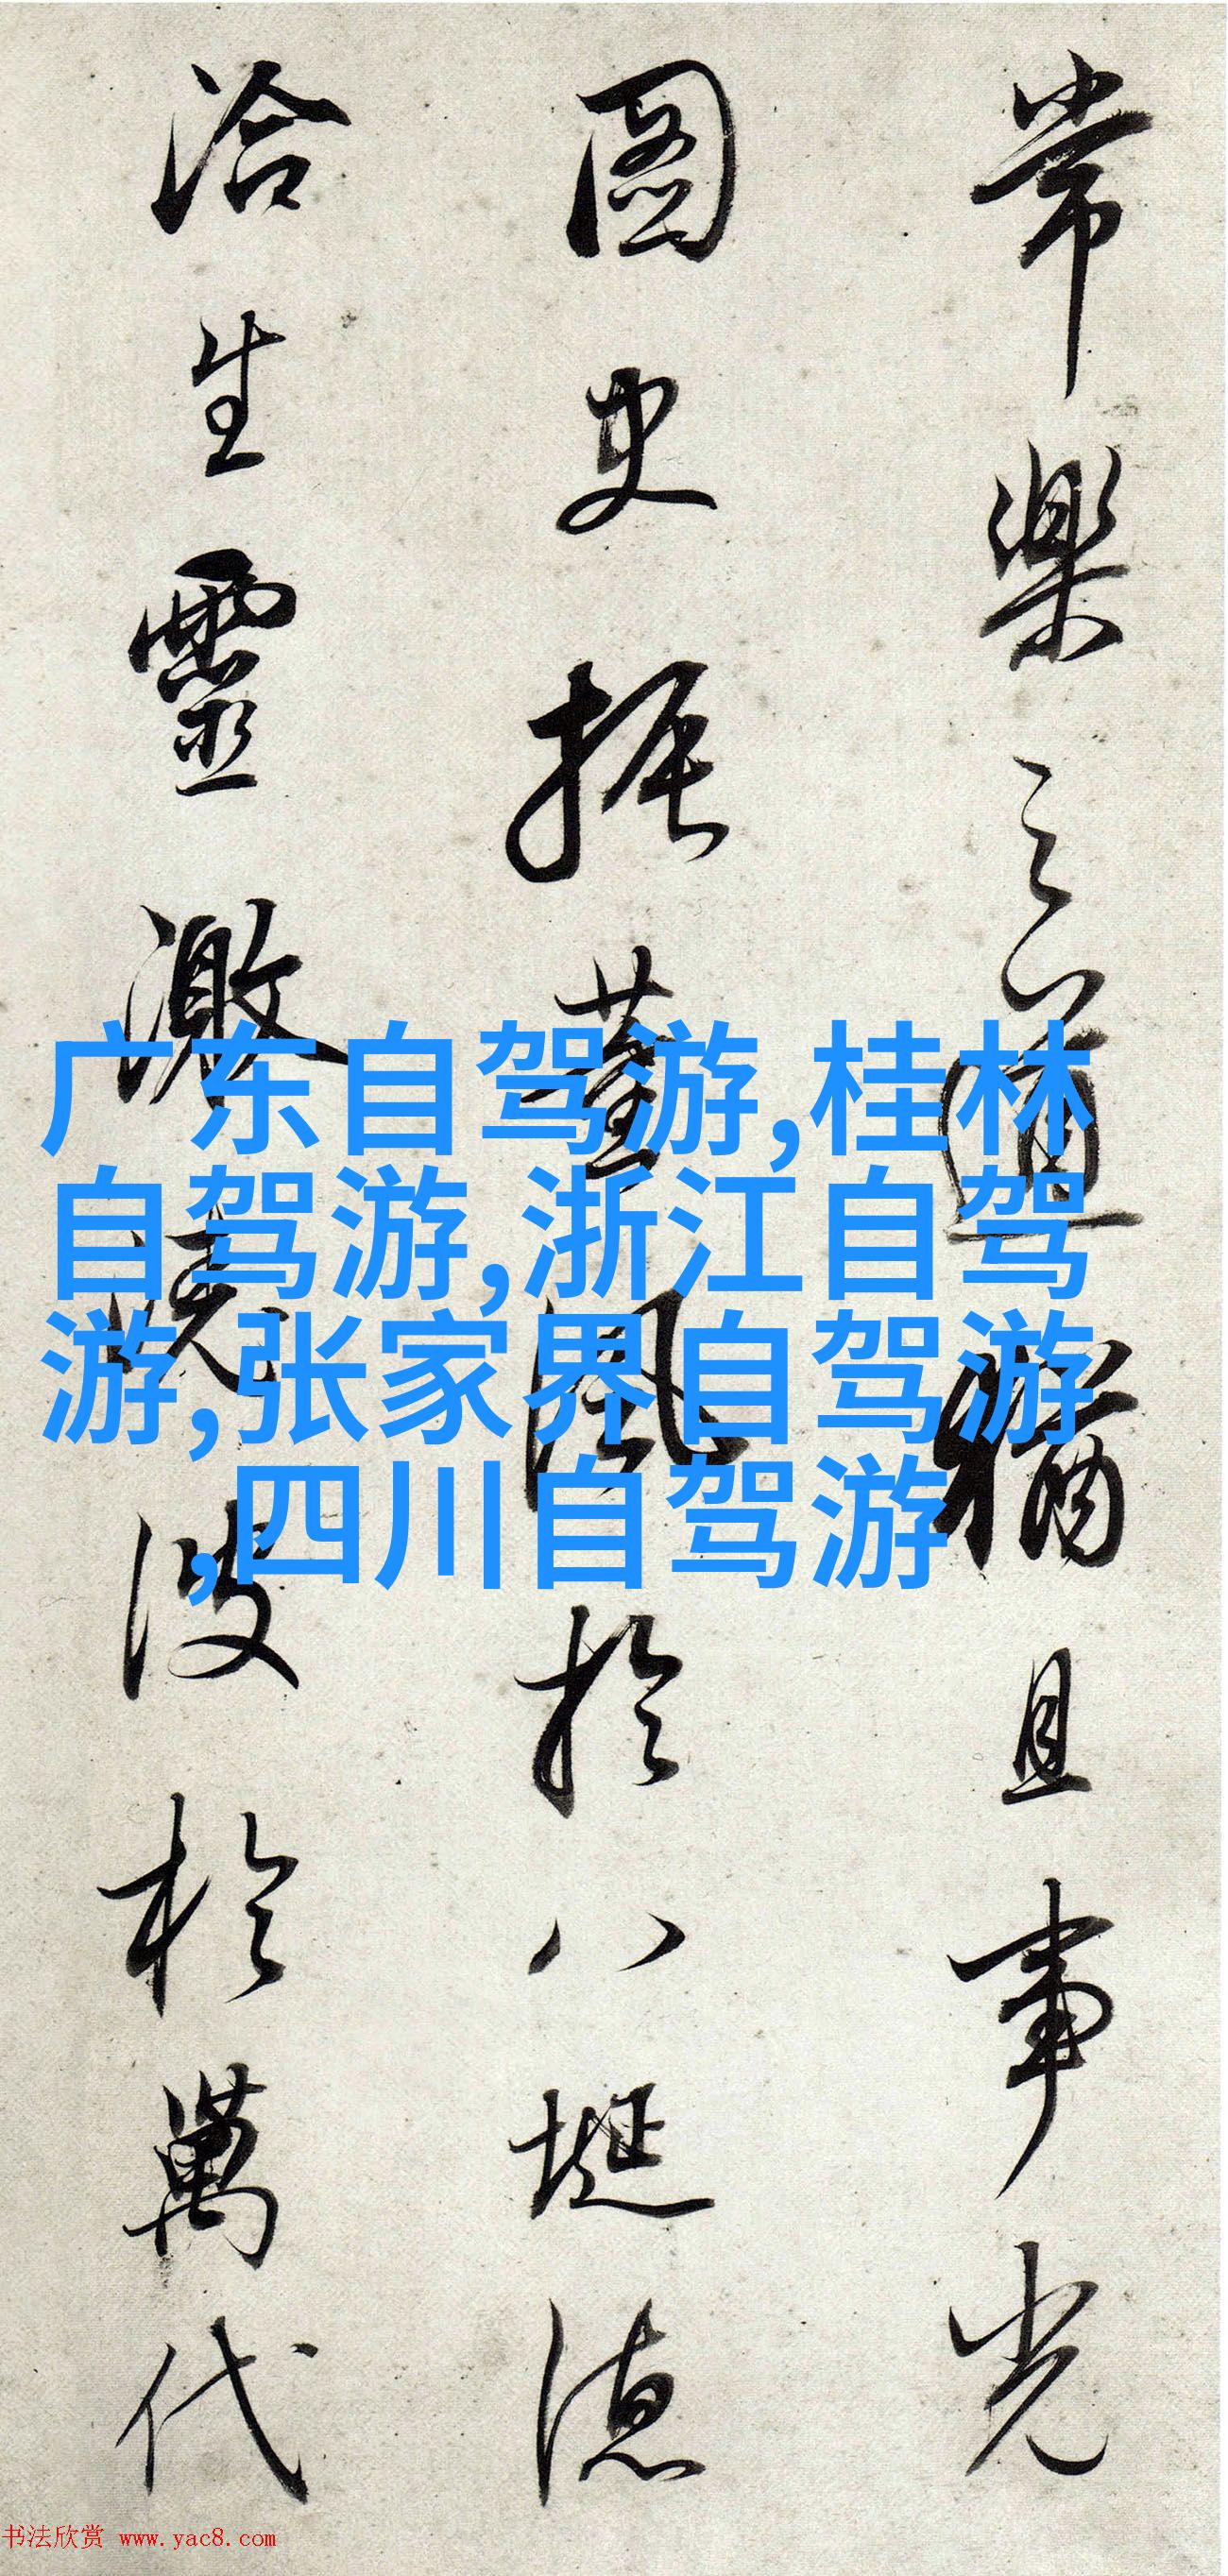 常樂之道猶且事光
圖史振薰風於八埏德
洽生靈激澆波於萬代
广东自驾游,桂林
自驾游,浙江自驾
游,张家界自驾游
,四川自驾游
书法欣赏 www.yac8.com